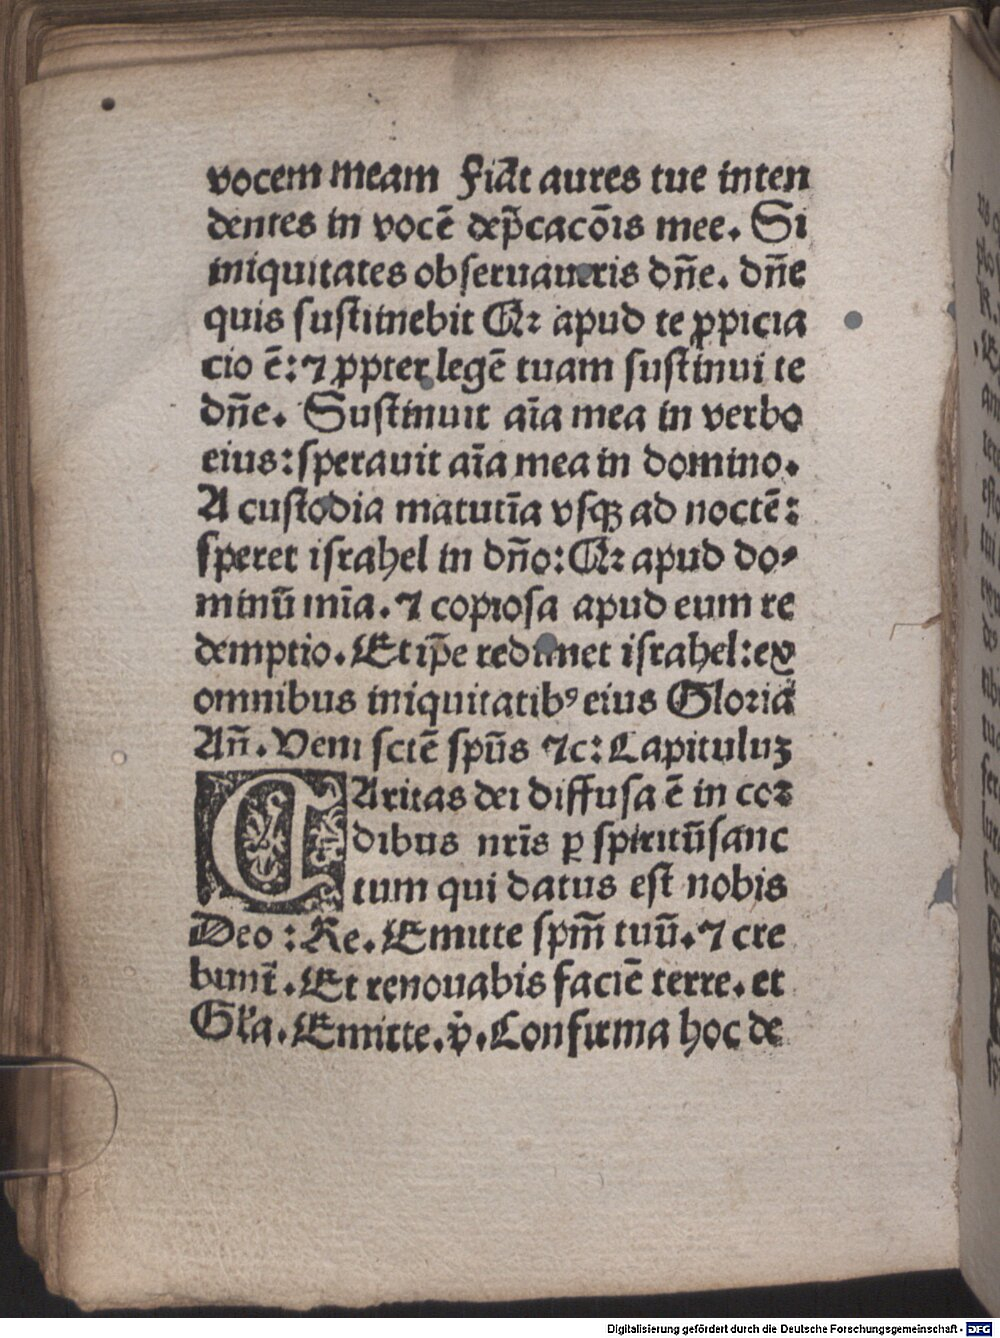 vocem meam Fiāt aures tue inten
dentes in vocē dep̄cacōis mee. Si
iniquitates obſeruaueris dn̄e. dn̄e
quis ſuſtinebit Qꝛ apud te ꝓpicia
cio ē: ⁊ ꝓpter legē tuam ſuſtinui te
dn̄e. Suſtinuit aīa mea in verbo
eius: ſperauit aīa mea in domino.
A cuſtodia matutīa vſqꝫ ad noctē:
ſperet iſrahel in dn̄o: Qꝛ apud do⸗
minū mīa. ⁊ copioſa apud eum re
demptio. Et ip̄e redimet iſrahel: ex
omnibus iniquitatibꝰ eius Gloria
An̄. Veni ſctē ſpūs ⁊c: Capituluꝫ
CAritas dei diffuſa ē in coꝛ
dibus nr̄is ꝑ ſpiritūſanc
tum qui datus eſt nobis
Deo: Re. Emitte ſpm̄ tuū. ⁊ cre
bunt̄. Et renouabis faciē terre. et
Gl̄a. Emitte. v̊. Confirma hoc de
Digitalisierung gefördert durch die Deutsche Forschungsgemeinschaft - DFG